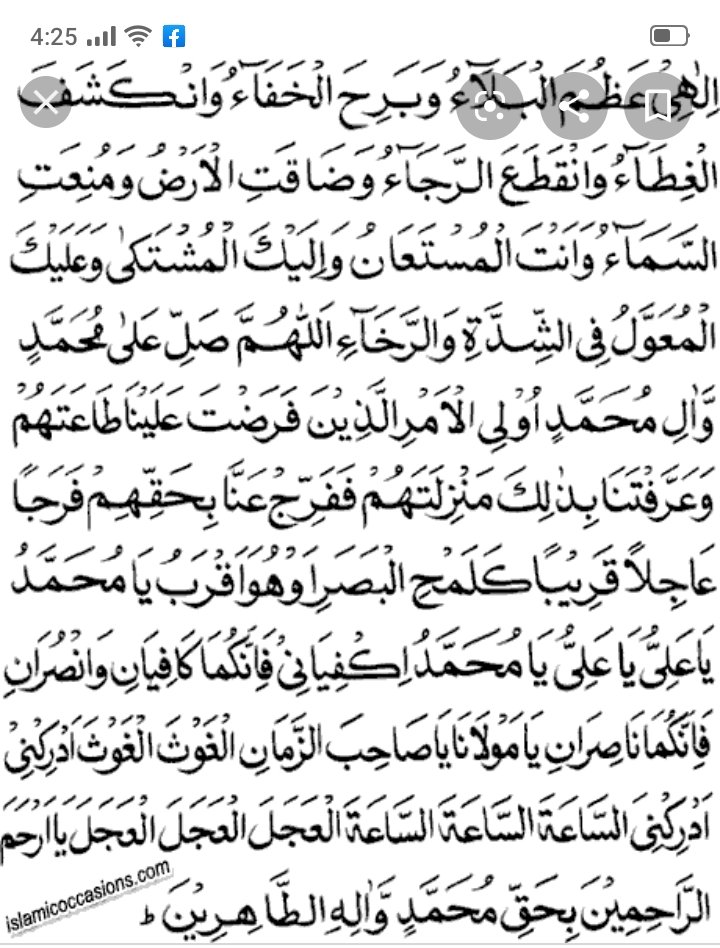 4:25
اِلٰهِيْ عَظُمَ الْبَلَآءُ وَبَرِحَ الْخَفَآءُ وَانْكَشَفَ
الْغِطَآءُ وَانْقَطَعَ الرَّجَآءُ وَضَاقَتِ الْاَرْضُ وَمُنِعَتِ
السَّمَآءُ وَاَنْتَ الْمُسْتَعَانُ وَاِلَيْكَ الْمُشْتَكٰى وَعَلَيْكَ
الْمُعَوَّلُ فِي الشِّدَّةِ وَالرَّخَآءِ اَللّٰهُمَّ صَلِّ عَلٰى مُحَمَّدٍ
وَّاٰلِ مُحَمَّدٍ اُولِي الْاَمْرِ الَّذِيْنَ فَرَضْتَ عَلَيْنَا طَاعَتَهُمْ
وَعَرَّفْتَنَا بِذٰلِكَ مَنْزِلَتَهُمْ فَفَرِّجْ عَنَّا بِحَقِّهِمْ فَرَجًا
عَاجِلًا قَرِيْبًا كَلَمْحِ الْبَصَرِ اَوْ هُوَ اَقْرَبُ يَا مُحَمَّدُ
يَا عَلِىُّ يَا عَلِىُّ يَا مُحَمَّدُ اِكْفِيَانِيْ فَاِنَّكُمَا كَافِيَانِ وَانْصُرَانِ
فَاِنَّكُمَا نَاصِرَانِ يَا مَوْلَانَا يَا صَاحِبَ الزَّمَانِ الْغَوْثَ الْغَوْثَ اَدْرِكْنِيْ
اَدْرِكْنِيْ السَّاعَةَ السَّاعَةَ السَّاعَةَ الْعَجَلَ الْعَجَلَ الْعَجَلَ يَا اَرْحَمَ
الرَّاحِمِيْنَ بِحَقِّ مُحَمَّدٍ وَّاٰلِهِ الطَّاهِرِيْنَ ط
islamicoccasions.com